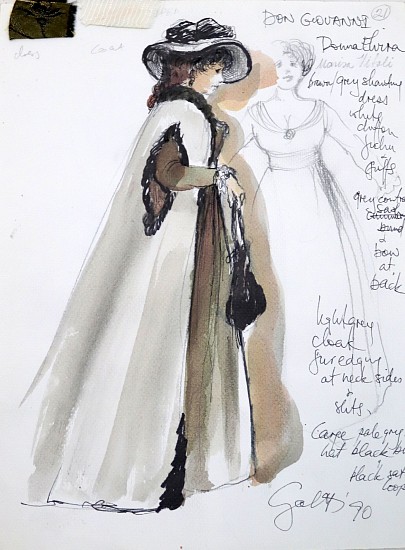 dress
Coat
DON GIOVANNI
21
Donna Elvira
brown/grey shantung
dress
white
chiffon
fichu
cuffs
grey
bow
at
back
light grey
cloak
fur edging
at neck sides
&
slits
Large pale grey
hat black
black
loop
'90